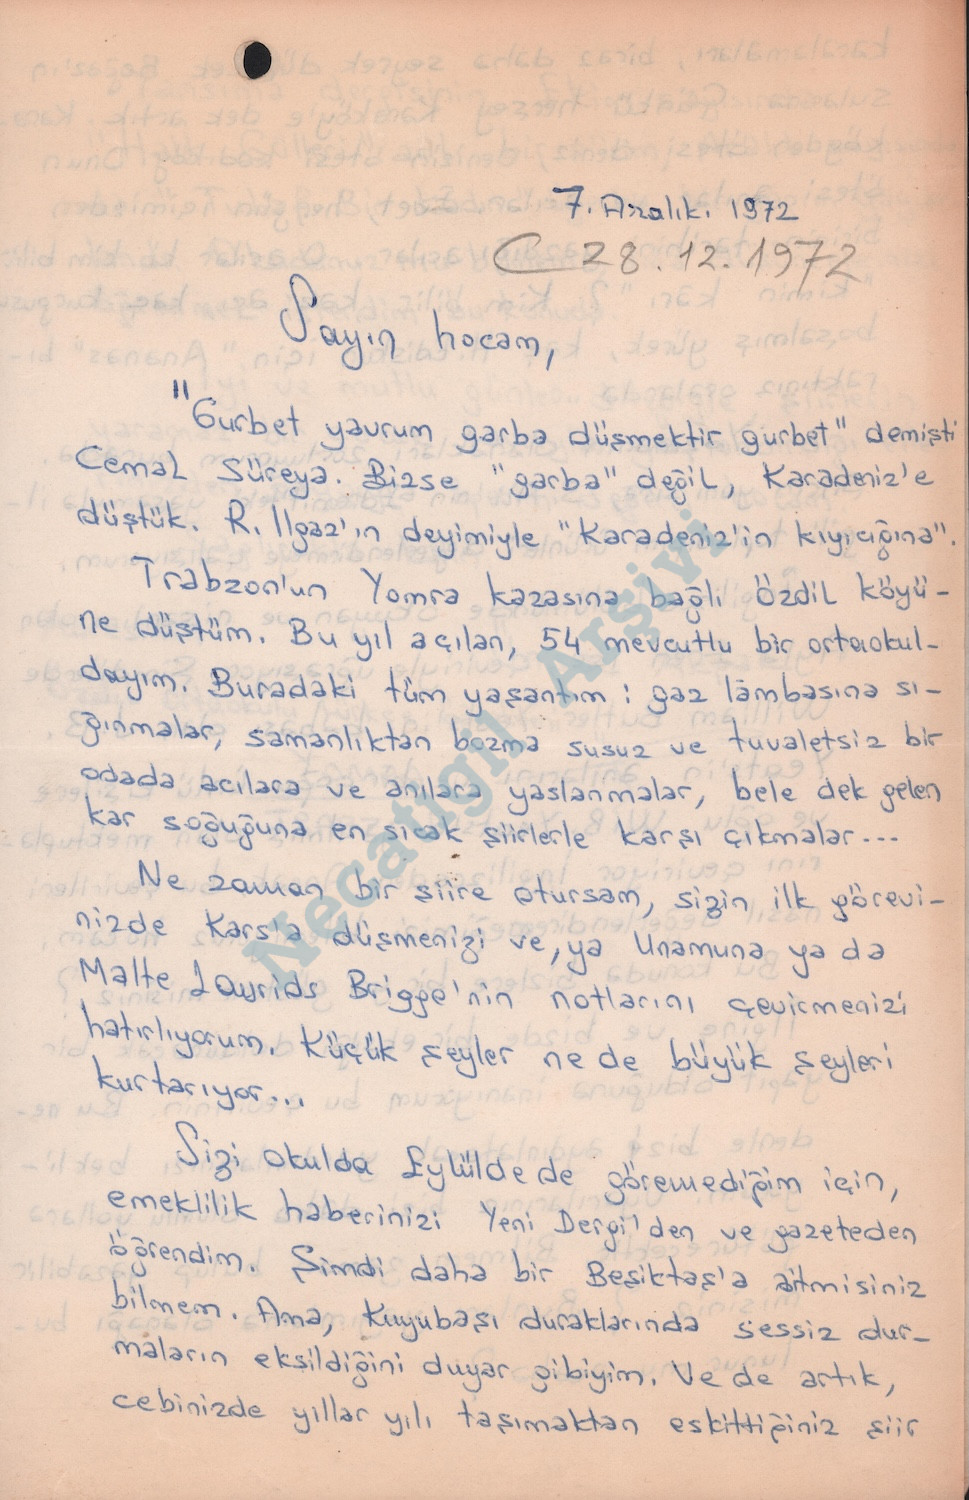 7. Aralık. 1972
C 28.12.1972
Sayın hocam,
"Gurbet yavrum garba düşmektir gurbet" demişti
Cemal Süreya. Bizse "garba" değil, Karadeniz'e
düştük. R. Ilgaz'ın deyimiyle "Karadeniz'in kıyıcığına".
Trabzon'un Yomra kazasına bağlı Özdil köyü-
ne düştüm. Bu yıl açılan, 54 mevcutlu bir ortaokul-
dayım. Buradaki tüm yaşantım : gaz lâmbasına sı-
ğınmalar, samanlıktan bozma susuz ve tuvaletsiz bir
odada acılara ve anılara yaslanmalar, bele dek gelen
kar soğuğuna en sıcak şiirlerle karşı çıkmalar...
Ne zaman bir şiire otursam, sizin ilk görevi-
nizde Kars'a düşmenizi ve, ya Unamuna ya da
Malte Laurids Brigge'nin notlarını çevirmenizi
hatırlıyorum. Küçük şeyler ne de büyük şeyleri
kurtarıyor...
Sizi okulda Eylülde de göremediğim için,
emeklilik haberinizi Yeni Dergi'den ve gazeteden
öğrendim. Şimdi daha bir Beşiktaş'a aitmisiniz
bilmem. Ama, Kuyubaşı duraklarında sessiz dur-
maların eksildiğini duyar gibiyim. Ve de artık,
cebinizde yıllar yılı taşımaktan eskittiğiniz şiir
Necatigil Arşivi